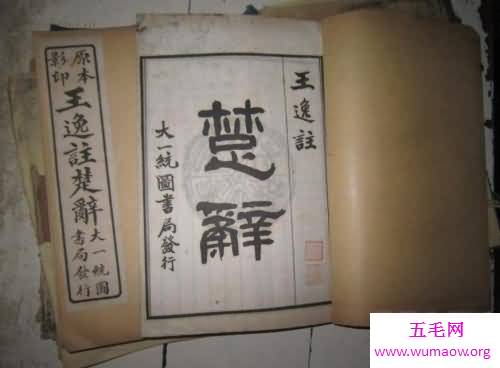 原本
影印
王逸註楚辭
大一統圖
書局發行
王逸註
楚辭
大一統圖書局發行
五毛网
www.wumaow.org